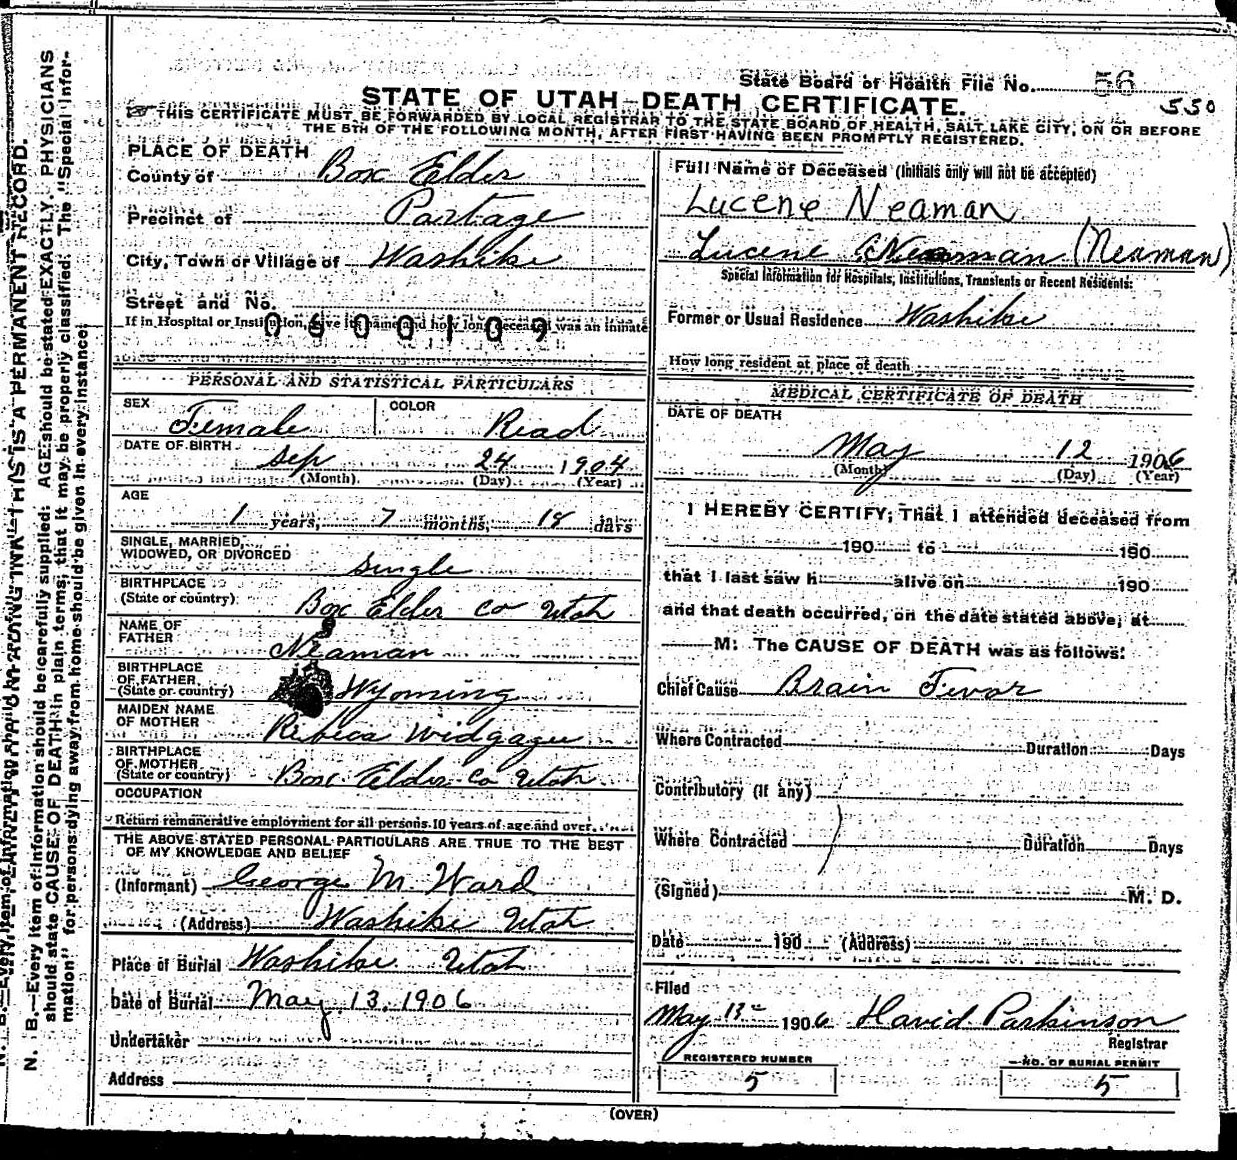 State Board of Health File No. 56
550
STATE OF UTAH—DEATH CERTIFICATE.
THIS CERTIFICATE MUST BE FORWARDED BY LOCAL REGISTRAR TO THE STATE BOARD OF HEALTH, SALT LAKE CITY, ON OR BEFORE
THE 5TH OF THE FOLLOWING MONTH, AFTER FIRST HAVING BEEN PROMPTLY REGISTERED.
PLACE OF DEATH
County of Box Elder
Precinct of Portage
City, Town or Village of Washikie
Street and No.
If in Hospital or Institution, give its name and how long deceased was an inmate
0600109
PERSONAL AND STATISTICAL PARTICULARS
SEX Female COLOR Read
DATE OF BIRTH Sep 24 1904
(Month) (Day) (Year)
AGE
1 years, 7 months, 18 days
SINGLE, MARRIED,
WIDOWED, OR DIVORCED single
BIRTHPLACE
(State or country) Box Elder Co Utah
NAME OF
FATHER Neaman
BIRTHPLACE
OF FATHER
(State or country) Wyoming
MAIDEN NAME
OF MOTHER Rebeca Widgagee
BIRTHPLACE
OF MOTHER
(State or country) Box Elder Co Utah
OCCUPATION
Return remunerative employment for all persons 10 years of age and over.
THE ABOVE STATED PERSONAL PARTICULARS ARE TRUE TO THE BEST
OF MY KNOWLEDGE AND BELIEF
(Informant) George M. Ward
(Address) Washikie Utah
Place of Burial Washikie Utah
Date of Burial May 13, 1906
Undertaker
Address
Full Name of Deceased (Initials only will not be accepted)
Lucene Neaman
Lucene Neaman (Neaman)
Special Information for Hospitals, Institutions, Transients or Recent Residents:
Former or Usual Residence Washikie
How long resident at place of death
MEDICAL CERTIFICATE OF DEATH
DATE OF DEATH
May 12 1906
(Month) (Day) (Year)
I HEREBY CERTIFY, That I attended deceased from
190 to 190
that I last saw h alive on 190
and that death occurred, on the date stated above, at
M. The CAUSE OF DEATH was as follows:
Chief Cause Brain Fevor
Where Contracted Duration Days
Contributory (if any)
Where Contracted Duration Days
(Signed) M. D.
Date 190 (Address)
Filed
May 13 1906 David Parkinson
Registrar
REGISTERED NUMBER
5
NO. OF BURIAL PERMIT
5
(OVER)
N. B.—Every item of information should be carefully supplied. AGE should be stated EXACTLY. PHYSICIANS
should state CAUSE OF DEATH in plain terms, that it may be properly classified. The "Special Infor-
mation" for persons dying away from home should be given in every instance.
THIS IS A PERMANENT RECORD.